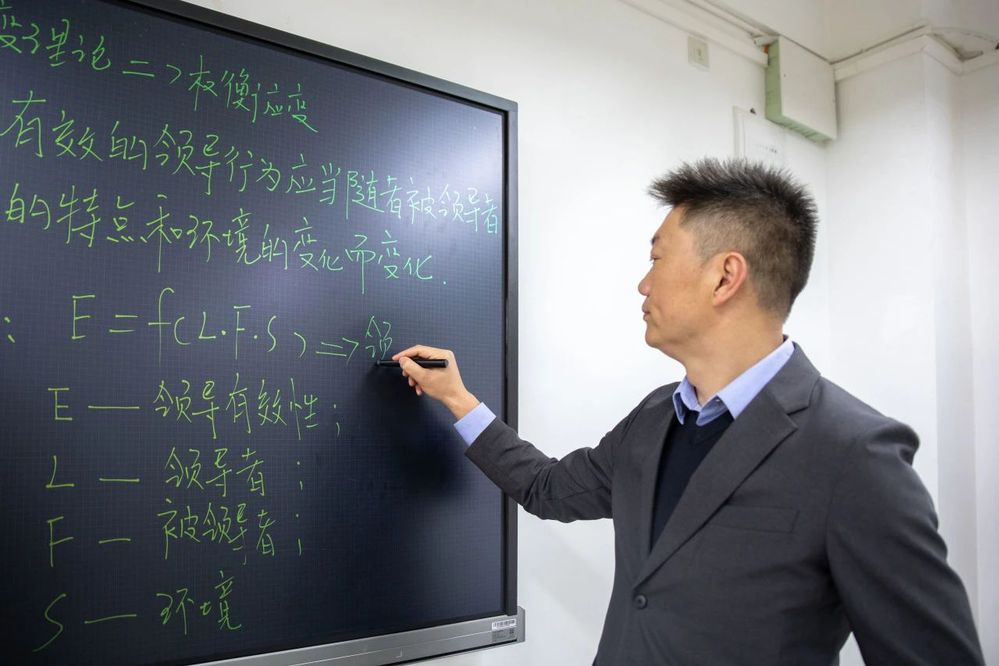 变理论 => 权衡应变
有效的领导行为应当随者被领导者
的特点和环境的变化而变化.
: E = f(L·F·S) => 领
E — 领导有效性;
L — 领导者 ;
F — 被领导者;
S — 环境